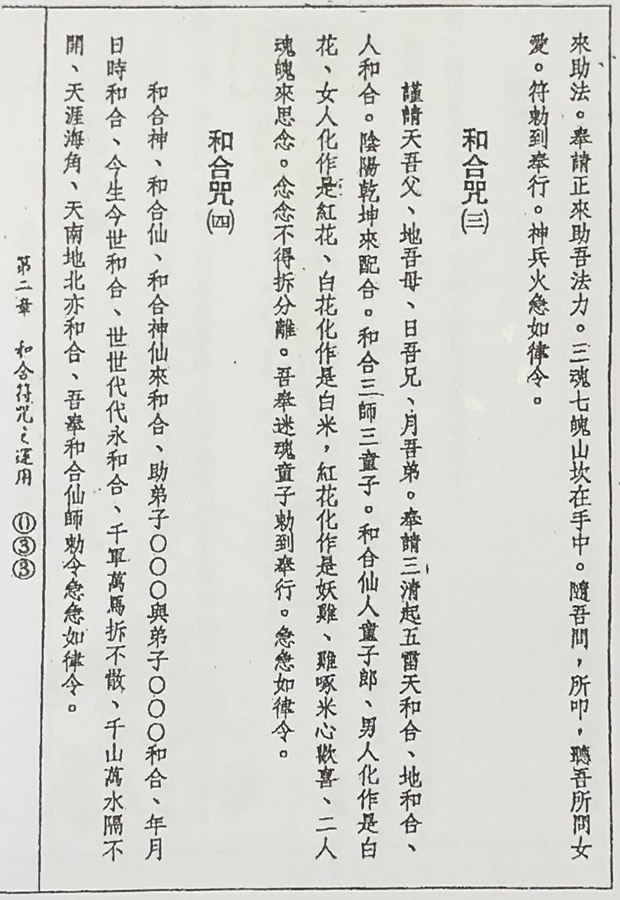 來助法。奉請正來助吾法力。三魂七魄山坎在手中。隨吾問，所叩，聽吾所問女
愛。符勅到奉行。神兵火急如律令。
和合咒㈢
謹請天吾父、地吾母、日吾兄、月吾弟。奉請三清起五雷天和合、地和合、
人和合。陰陽乾坤來配合。和合三師三童子。和合仙人童子郎、男人化作是白
花、女人化作是紅花、白花化作是白米，紅花化作是妖雞、雞啄米心歡喜、二人
魂魄來思念。念念不得拆分離。吾奉迷魂童子勅到奉行。急急如律令。
和合咒㈣
和合神、和合仙、和合神仙來和合、助弟子○○○與弟子○○○和合、年月
日時和合、今生今世和合、世世代代永和合、千軍萬馬拆不散、千山萬水隔不
開、天涯海角、天南地北亦和合、吾奉和合仙師勅令急急如律令。
第二章　和合符咒之運用　⓪③③